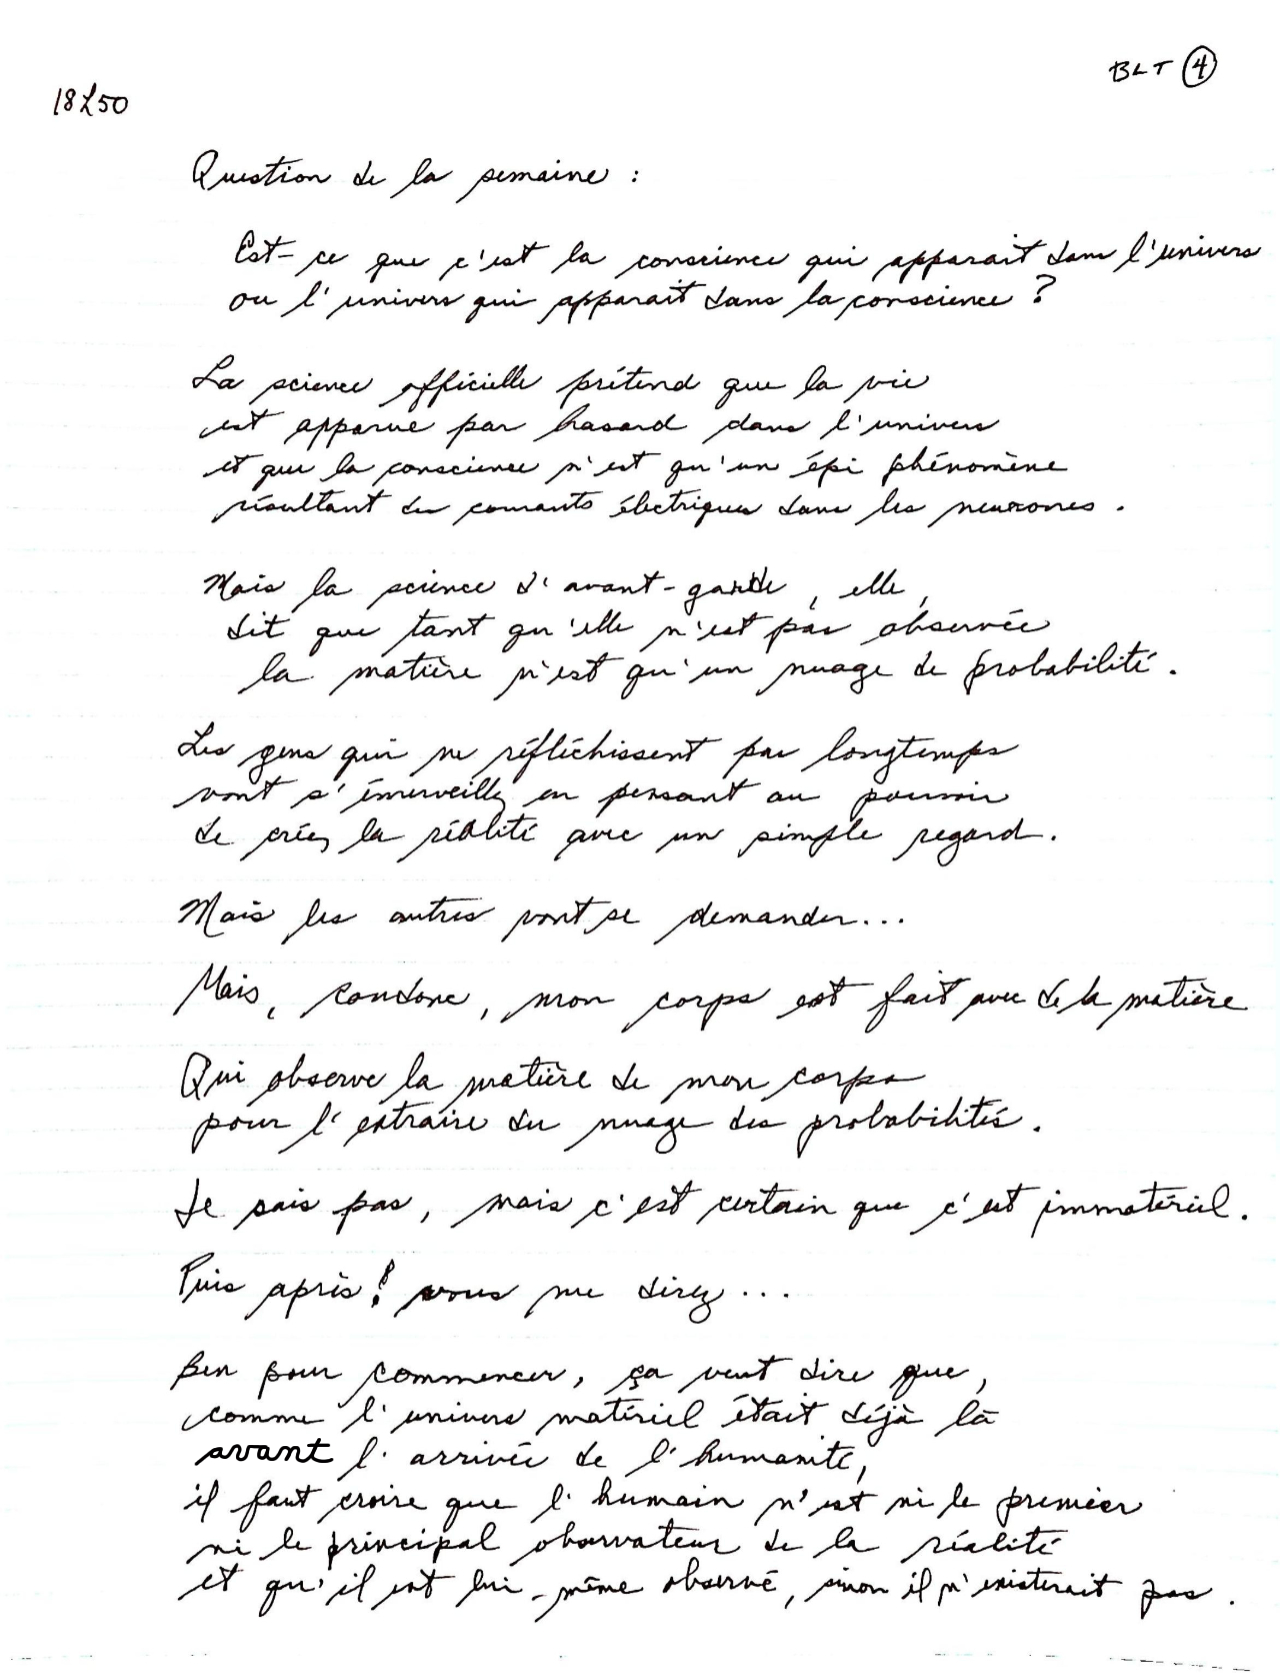 BLT 4
18L50
Question de la semaine :
Est-ce que c'est la conscience qui apparait dans l'univers
ou l'univers qui apparait dans la conscience ?
La science officielle prétend que la vie
est apparue par hasard dans l'univers
et que la conscience n'est qu'un épi phénomène
résultant des courants électriques dans les neurones .
Mais la science d'avant-garde , elle ,
dit que tant qu'elle n'est pas observée
la matière n'est qu'un nuage de probabilité .
Les gens qui ne réfléchissent pas longtemps
vont s'émerveiller en pensant au pouvoir
de créer la réalité avec un simple regard .
Mais les autres vont se demander...
Mais, coudonc, mon corps est fait avec de la matière
Qui observe la matière de mon corps
pour l'extraire du nuage des probabilités .
Je sais pas, mais c'est certain que c'est immatériel .
Puis après ! vous me direz ...
Ben pour commencer, ça veut dire que,
comme l'univers matériel était déjà là
avant l'arrivée de l'humanité,
il faut croire que l'humain n'est ni le premier
ni le principal observateur de la réalité
et qu'il est lui-même observé, sinon il n'existerait pas .